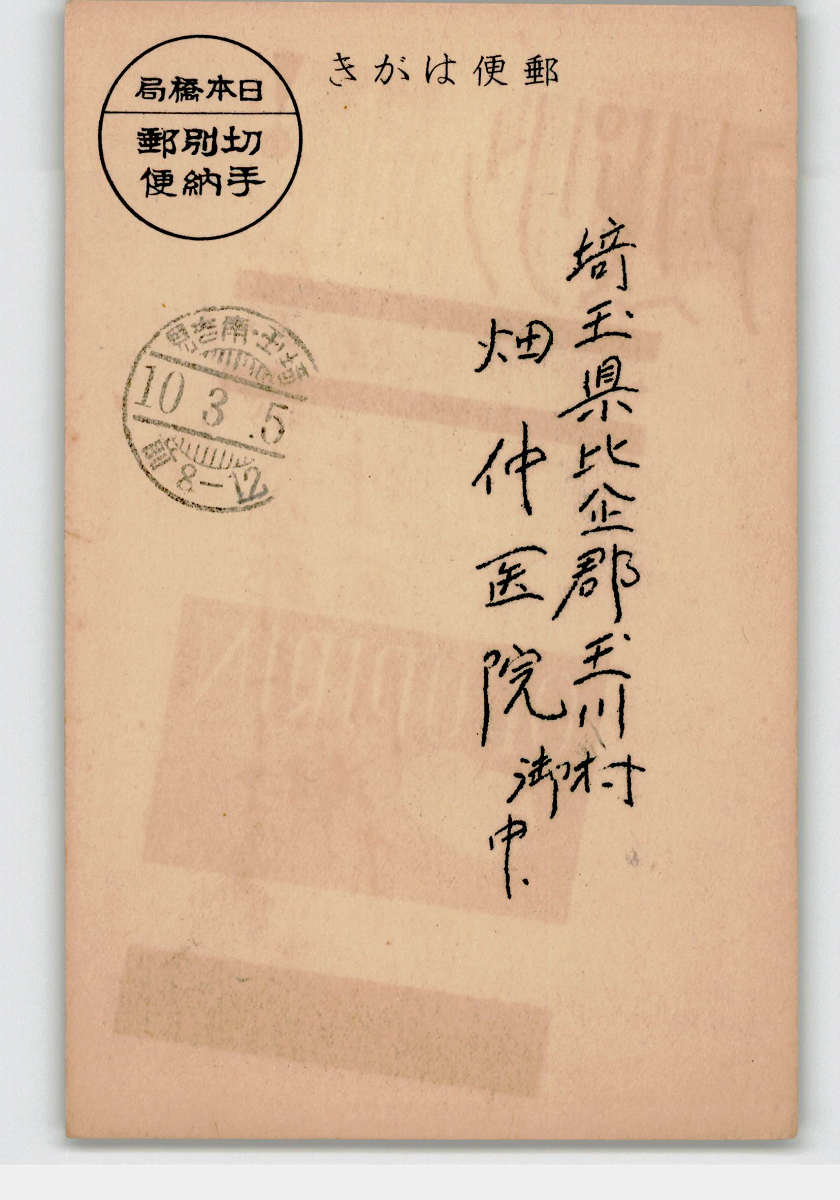 郵便はがき
日本橋局
切手別納郵便
埼玉・南吉見
10 3.5
前 8-12
埼玉県比企郡玉川村
畑仲医院御中.